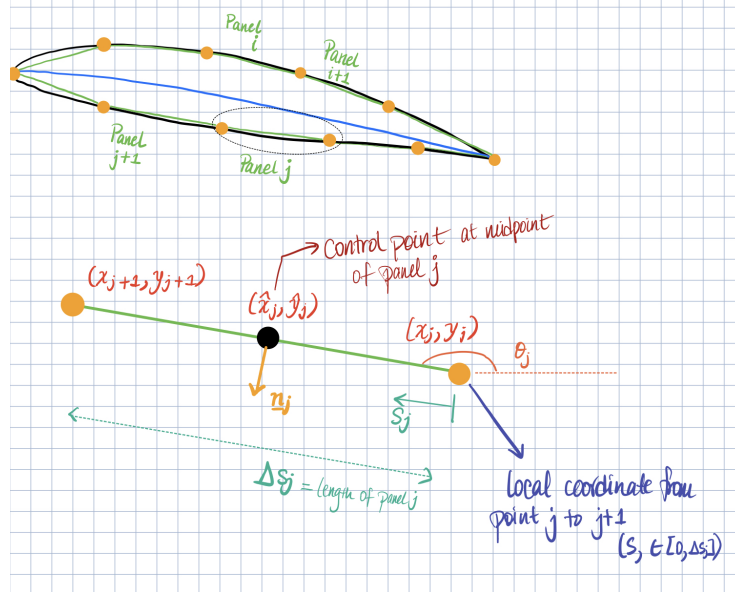 Panel
i
Panel
i+1
Panel
j+1
Panel j
Control point at midpoint
of panel j
(x_{j+1}, y_{j+1})
(x̂_j, ŷ_j)
(x_j, y_j)
θ_j
n_j
S_j
Δs_j = length of panel j
Local coordinate from
point j to j+1
(S, ∈ [0, Δs_j])